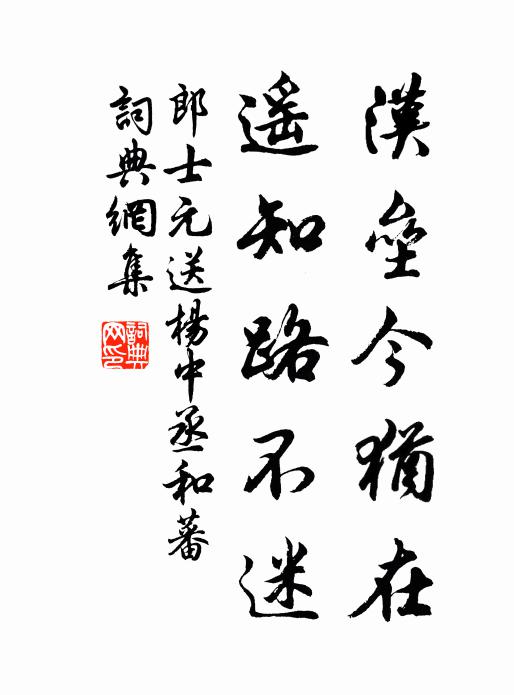 漢壘今猶在
遥知路不迷
郎士元送楊中丞和蕃
詞典網集
詞典网印